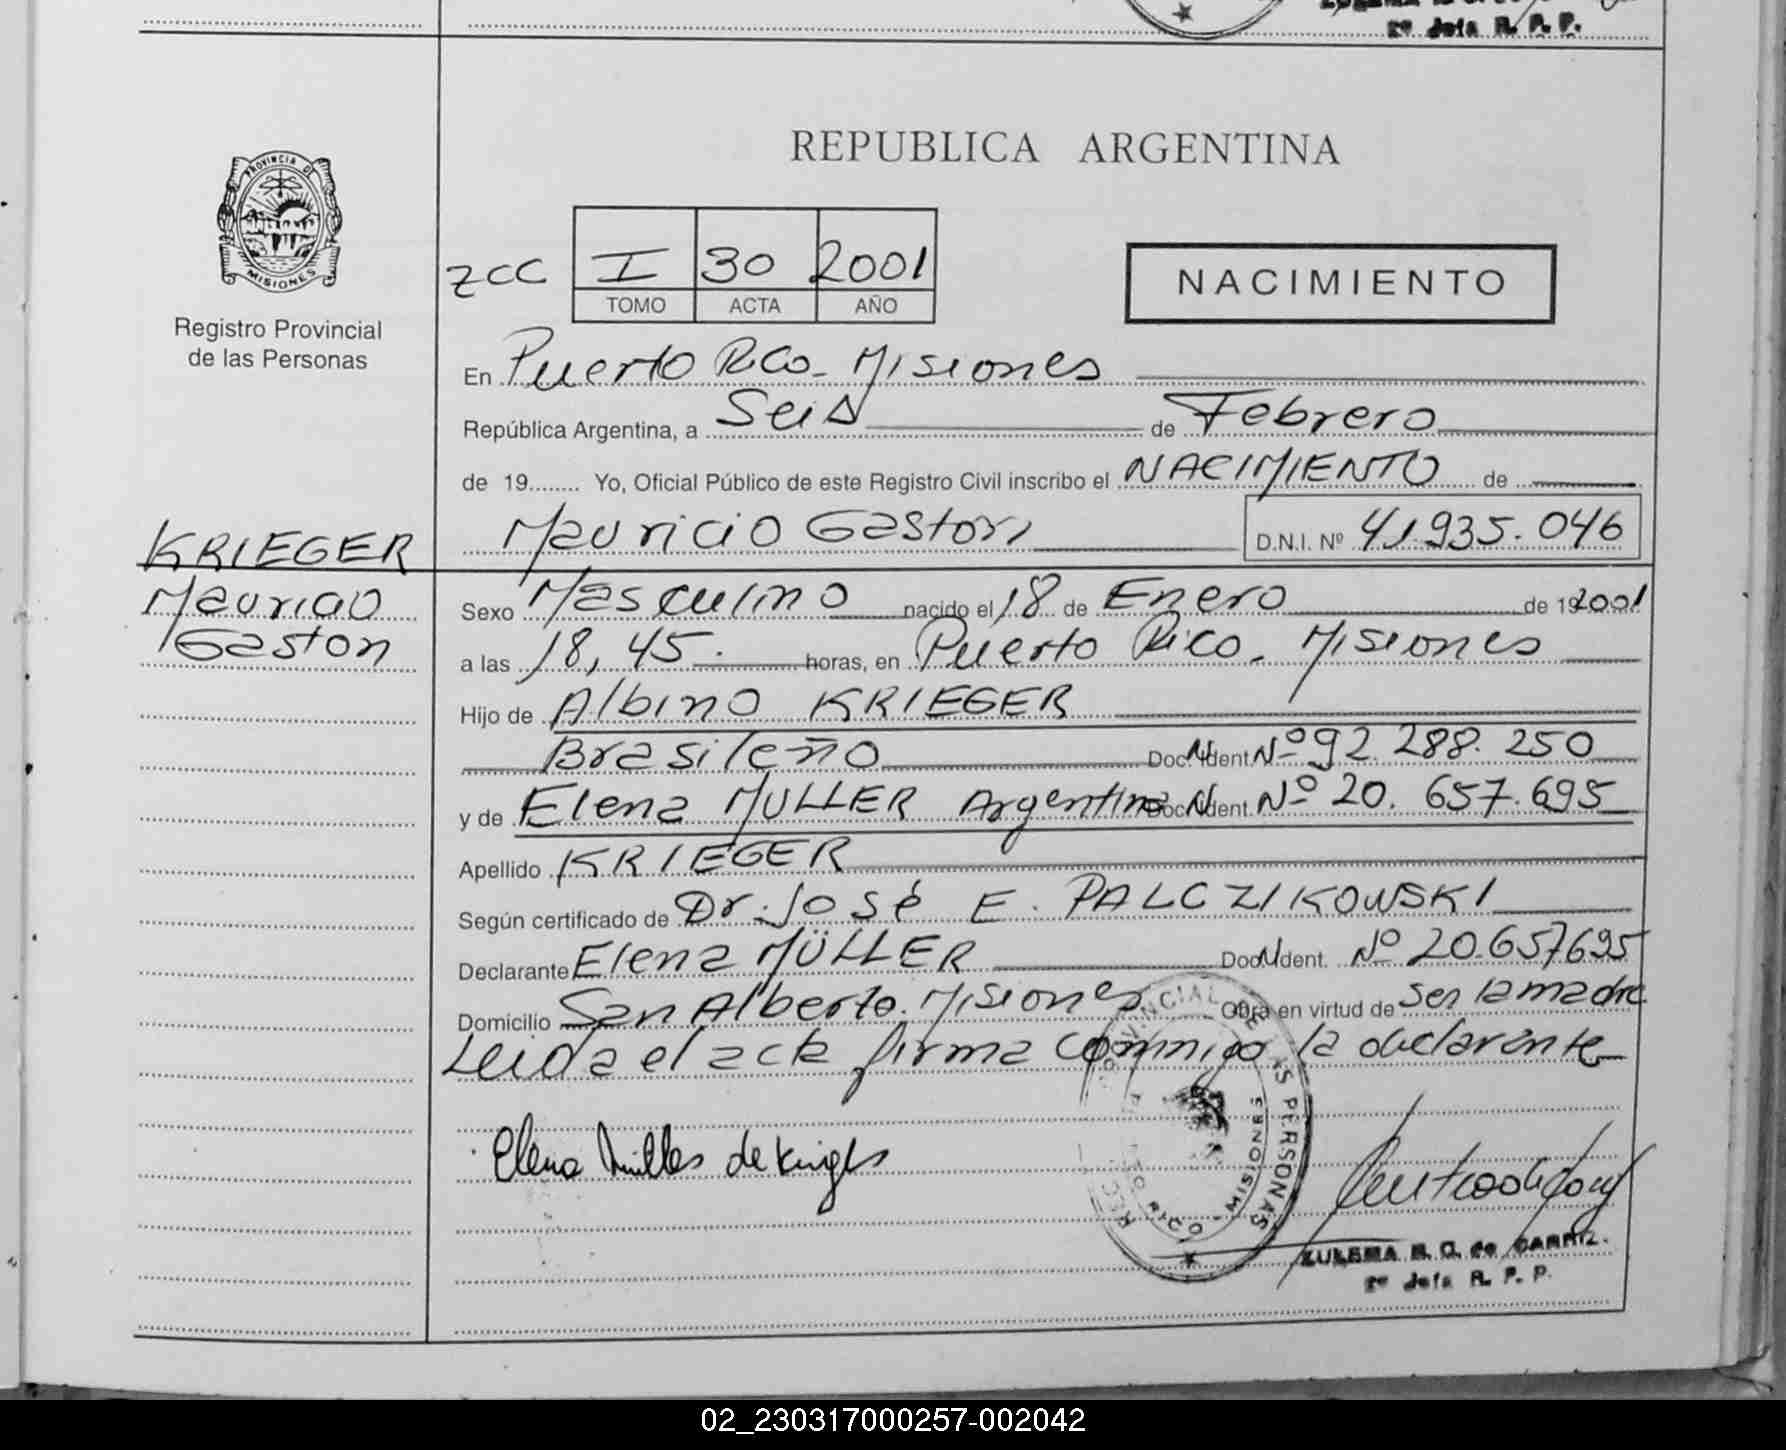 2º Jefa R. P. P.
REPUBLICA ARGENTINA
PROVINCIA DE
MISIONES
Registro Provincial
de las Personas
ZCC I 30 2001
TOMO ACTA AÑO
NACIMIENTO
En Puerto Rico - Misiones
República Argentina, a Seis de Febrero
de 19........ Yo, Oficial Público de este Registro Civil inscribo el NACIMIENTO de
KRIEGER
Mauricio
Gaston
Mauricio Gaston D.N.I. Nº 41.935.046
Sexo Masculino nacido el 18 de Enero de 19 2001
a las 18,45. horas, en Puerto Rico - Misiones
Hijo de Albino KRIEGER
Brasileño Doc. Ident. Nº 92.288.250
y de Elena MULLER Argentina Doc. Ident. Nº 20.657.695
Apellido KRIEGER
Según certificado de Dr. José E. PALCZIKOWSKI
Declarante Elena MÜLLER Doc. Ident. Nº 20.657695
Domicilio San Alberto - Misiones Obra en virtud de ser la madre
Leida el acta firma conmigo la declarante
Elena Muller de Kriger
PERSONAS
RICO - MISIONES
ZULEMA
2º Jefa R. P. P.
02_230317000257-002042